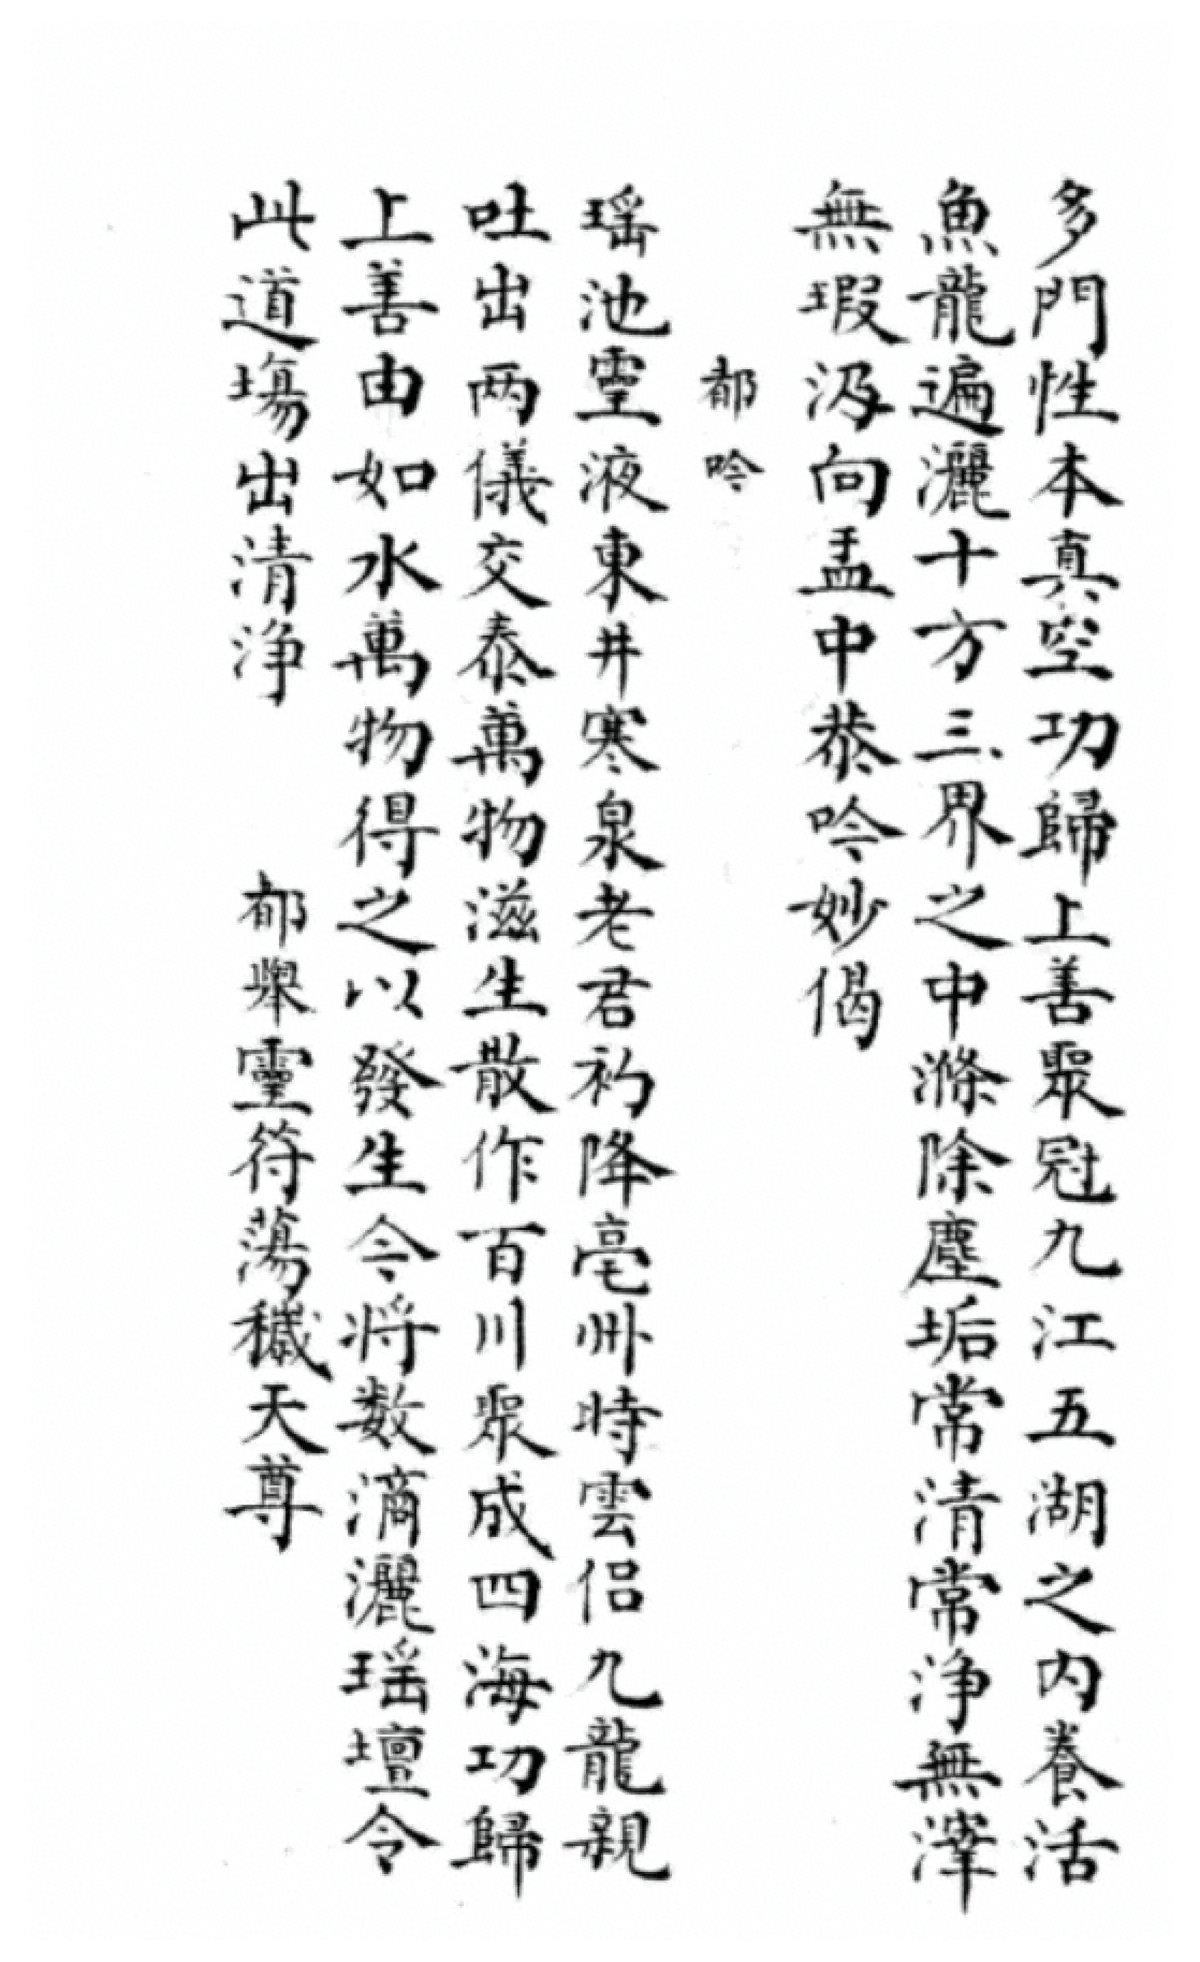 多門性本真空功歸上善聚冠九江五湖之内養活
魚龍遍灑十方三界之中滌除塵垢常清常浄無滓
無瑕汲向盂中恭吟妙偈
都吟
瑶池霊液東井寒泉老君初降亳州時雲侣九龍親
吐出两儀交泰萬物滋生散作百川聚成四海功歸
上善由如水萬物得之以發生今将数滴灑瑶壇令
此道塲出清浄　都舉靈符蕩穢天尊